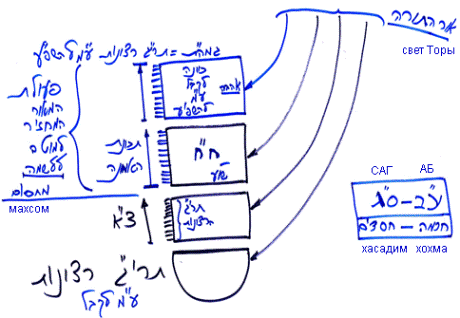 אור התורה
свет Торы
גמה"ת = תרי"ג רצונות ע"מ להשפיע
כוונה
לקבל
ע"מ
להשפיע
אהבה
פעולת
המאור
המחזיר
למוטב
ללשמה
מחסום
махсом
תכונת
האמונה
ח"ח
תרי"ג
רצונות
תרי"ג רצונות
ע"מ לקבל
САГ АБ
ע"ב – ס"ג
חכמה – חסדים
хасадим хохма